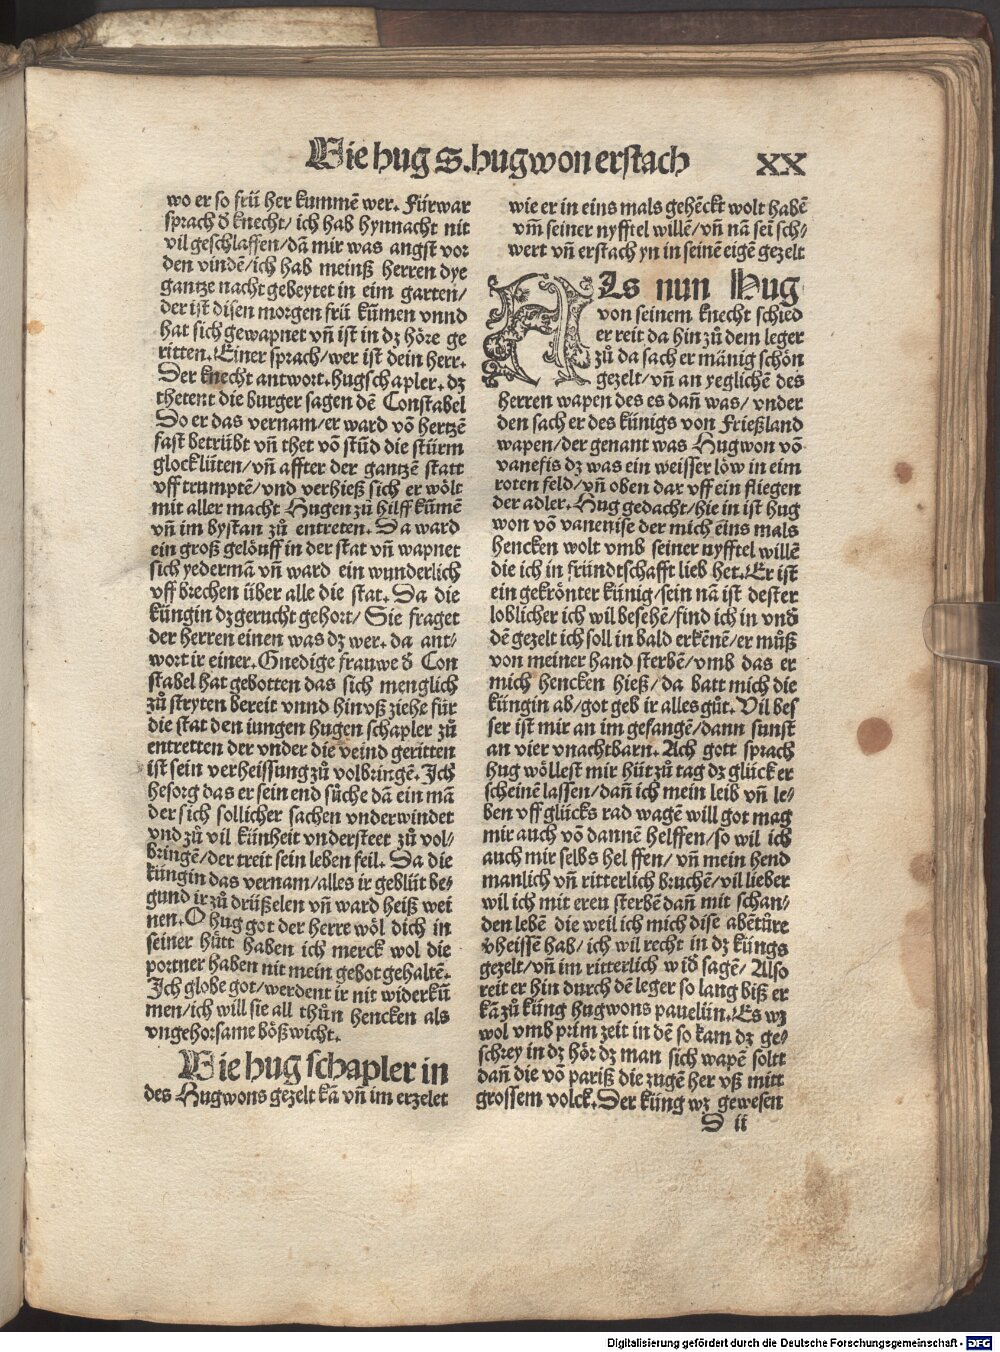 Wie hug S. hugwon erstach XX
wo er so frü her kummē wer. Fürwar
sprach d̄ knecht/ ich hab hynnacht nit
vil geschlaffen/ dā mir was angst vor
den vindē/ ich hab meinß herren dye
gantze nacht gebeytet in eim garten/
der ist disen morgen frü kūmen vnnd
hat sich gewapnet vn̄ ist in dz höre ge
ritten. Einer sprach/ wer ist dein herr.
Der knecht antwort. hugschapler. dz
thetent die burger sagen dē Constabel
Do er das vernam/ er ward vō hertzē
fast betrübt vn̄ thet vō stūd die stürm
glocklüten/ vn̄ affter der gantzē statt
vff trumptē/ vnd verhieß sich er wölt
mit aller macht Hugen zů hilff kūmē
vn̄ im bystan zů entreten. Da ward
ein groß gelöuff in der stat vn̄ wapnet
sich yedermā vn̄ ward ein wunderlich
vff brechen über alle die stat. Da die
küngin dz gerucht gehort/ Sie fraget
der herren einen was dz wer. da ant/
wort ir einer. Gnedige frauwe d̄ Con
stabel hat gebotten das sich menglich
zů stryten bereit vnnd hinvß ziehe für
die stat den iungen hugen schapler zů
entretten der vnder die veind geritten
ist sein verheissung zů volbringē. Ich
besorg das er sein end sůche dā ein mā
der sich sollicher sachen vnderwindet
vnd zů vil künheit vndersteet zů vol/
bringē/ der treit sein leben feil. Da die
küngin das vernam/ alles ir geblüt be/
gund ir zů drüßelen vn̄ ward heiß wei
nen. O hug got der herre wöl dich in
seiner hůtt haben ich merck wol die
portner haben nit mein gebot gehaltē.
Ich globe got/ werdent ir nit widerkū
men/ ich will sie all thůn hencken als
vngehorsame bößwicht.
Wie hug schapler in
des Hugwons gezelt kā vn̄ im erzelet
wie er in eins mals gehēckt wolt habē
vm̄ seiner nyfftel willē/ vn̄ nā sei sch/
wert vn̄ erstach yn in seinē eigē gezelt
Als nun Hug
von seinem knecht schied
er reit da hin zů dem leger
zů da sach er mänig schön
gezelt/ vn̄ an yeglichē des
herren wapen des es dan̄ was/ vnder
den sach er des künigs von Frießland
wapen/ der genant was Hugwon vō
vanefis dz was ein weisser löw in eim
roten feld/ vn̄ oben dar vff ein fliegen
der adler. Hug gedacht/ hie in ist hug
won vō vanenise der mich eins mals
hencken wolt vmb seiner nyfftel willē
die ich in fründtschafft lieb het. Er ist
ein gekrönter künig/ sein nā ist dester
loblicher ich wil besehē/ find ich in vnd̄
dē gezelt ich soll in bald erkēnē/ er můß
von meiner hand sterbē/ vmb das er
mich hencken hieß/ da batt mich die
küngin ab/ got geb ir alles gůt. Vil bes
ser ist mir an im gefangē/ dann sunst
an vier vnachtbarn. Ach gott sprach
hug wöllest mir hüt zů tag dz glück er
scheinē lassen/ dan̄ ich mein leib vn̄ le/
ben vff glücks rad wagē will got mag
mir auch vō dannē helffen/ so wil ich
auch mir selbs hel ffen/ vn̄ mein hend
manlich vn̄ ritterlich bruchē/ vil lieber
wil ich mit eren sterbē dan̄ mit schan/
den lebē die weil ich mich dise abētūre
v̄heissē hab/ ich wil recht in dz küngs
gezelt/ vn̄ im ritterlich wid̄ sagē/ Also
reit er hin durch dē leger so lang biß er
kā zů küng hugwons pauelün. Es wz
wol vmb prim zeit in dē so kam dz ge/
schrey in dz hör dz man sich wapē soltt
dan̄ die vō pariß die zugē her vß mitt
grossem volck. Der küng wz gewesen
D ii
Digitalisierung gefördert durch die Deutsche Forschungsgemeinschaft - DFG